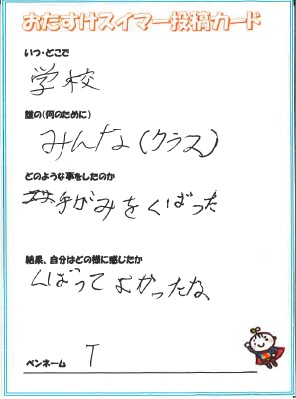 おたすけスイマー投稿カード
いつ・どこで
学校
誰の(何のために)
みんな(クラス)
どのような事をしたのか
手がみをくばった
結果、自分はどの様に感じたか
くばってよかったな
ペンネーム T